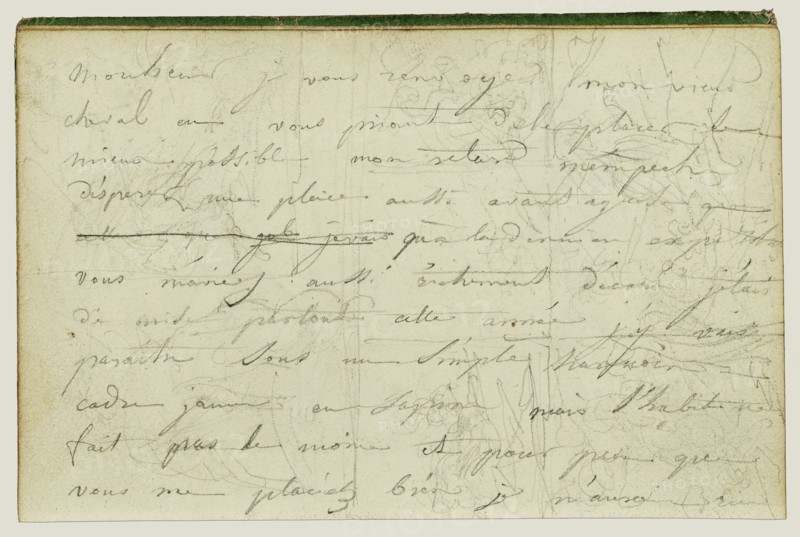 Monsieur je vous renvoye mon vieux
cheval en vous priant de le placer le
mieux possible mon retard m'empeche
d'esperer une place aussi avant ageuse que
celle que j'avais qua la derniere exposition
vous m'aviez aussi richement décoré j'étais
de mise partout cette année j'y vais
paraitre sous un simple harnois
cadre jauni en sapin mais l'habit ne
fait pas le moine et pour peu que
vous me placiez bien je n'aurai rien